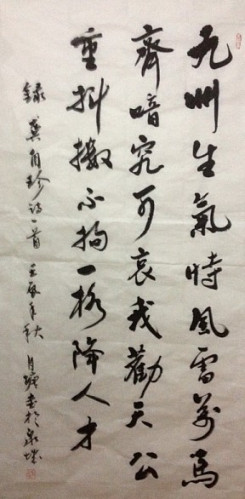 九州生氣恃風雷萬馬
齊喑究可哀我勸天公
重抖擻不拘一格降人才
錄龔自珍詩一首壬辰年秋月書於泉城